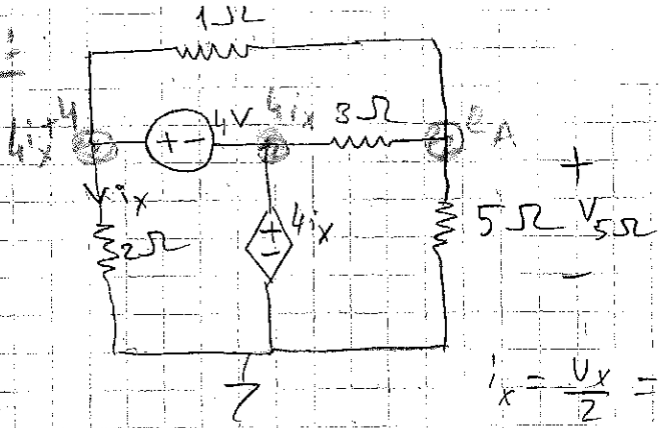 1Ω
4ix+4
+ - 4V
4ix
3Ω
eA
ix
2Ω
+ - 4ix
+
5Ω V5Ω
-
ix = Vx/2 =